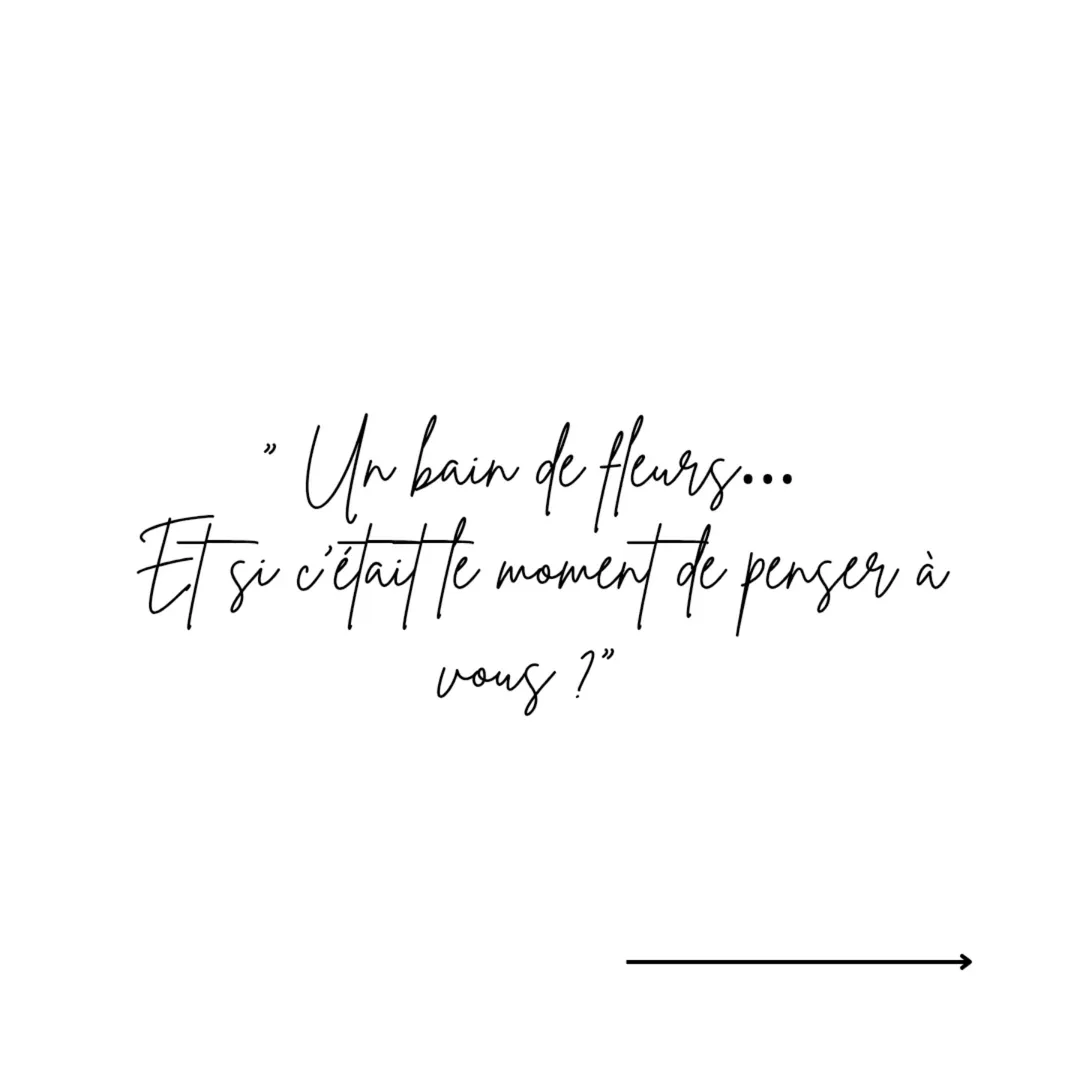 ” Un bain de fleurs...
Et si c’était le moment de penser à
vous ?”